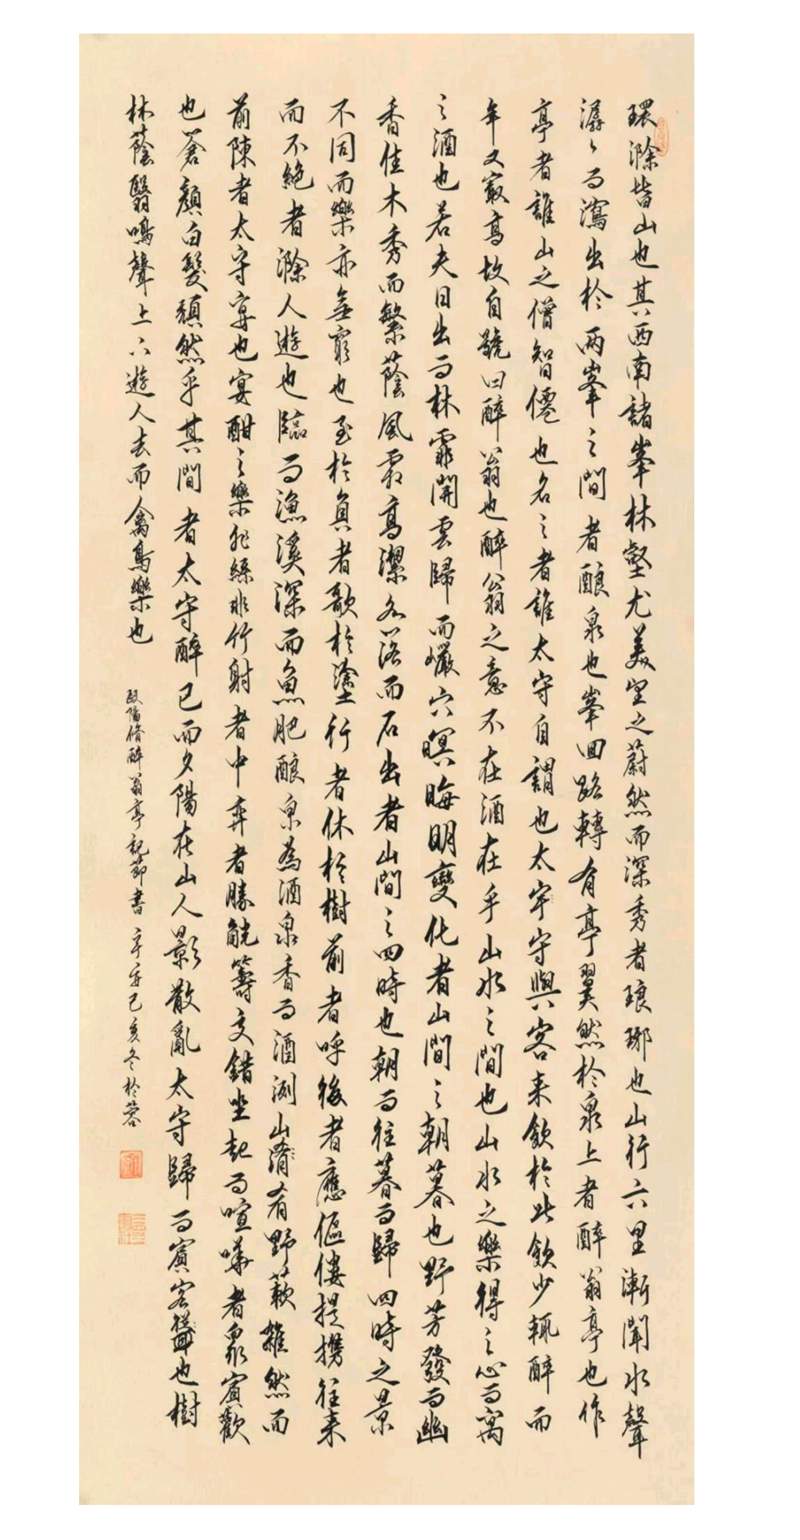 環滁皆山也其西南諸峯林壑尤美望之蔚然而深秀者琅琊也山行六里漸聞水聲
潺々而瀉出於兩峯之間者釀泉也峯回路轉有亭翼然於泉上者醉翁亭也作
亭者誰山之僧智僊也名之者誰太守自謂也太守與客来飲於此飲少輒醉而
年又最高故自號曰醉翁也醉翁之意不在酒在乎山水之間也山水之樂得之心而寓
之酒也若夫日出而林霏開雲歸而巖穴暝晦明變化者山間之朝暮也野芳發而幽
香佳木秀而繁蔭風霜高潔水落而石出者山間之四時也朝而往暮而歸四時之景
不同而樂亦無窮也至於負者歌於塗行者休於樹前者呼後者應傴僂提携往来
而不絶者滁人遊也臨而漁溪深而魚肥釀泉為酒泉香而酒洌山淆肴野蔌雜然而
前陳者太守宴也宴酣之樂非絲非竹射者中弈者勝觥籌交錯坐起而喧嘩者衆賓歡
也蒼顔白髮頹然乎其間者太守醉已而夕陽在山人影散亂太守歸而賓客從也樹
林蔭翳鳴聲上下遊人去而禽鳥樂也
歐陽脩醉翁亭記節書 己亥冬於蓉